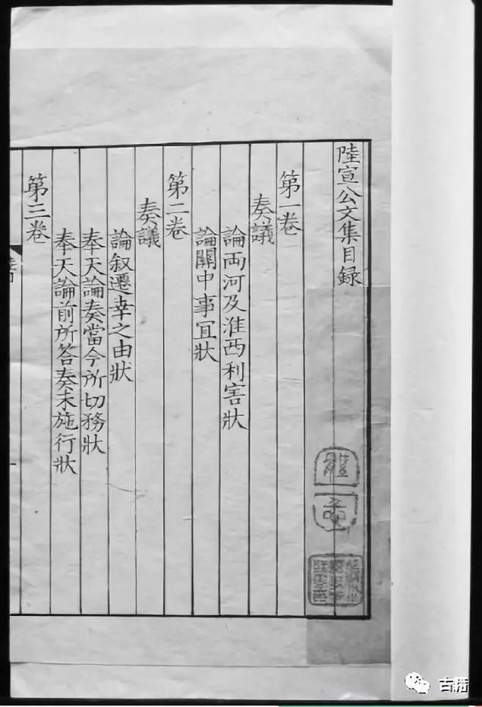 陸宣公文集目録
第一卷
奏議
論兩河及淮西利害狀
論關中事宜狀
第二卷
奏議
論叙遷幸之由狀
奉天論奏當今所切務狀
奉天論前所答奏未施行狀
第三卷
古籍